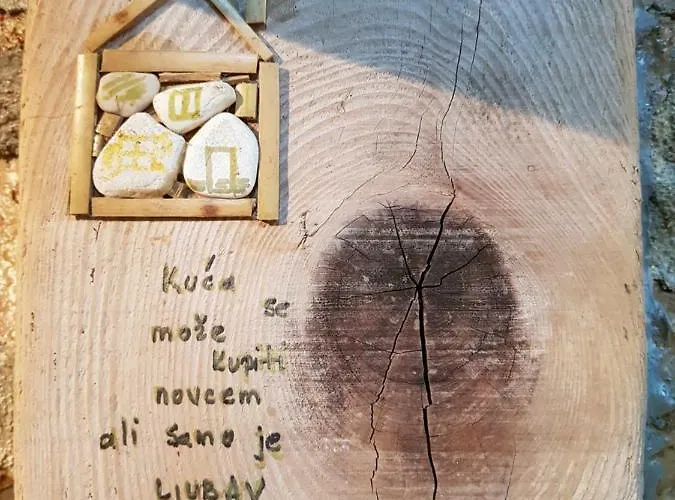 Kuća
se
može
kupiti
novcem
ali samo je
LJUBAV